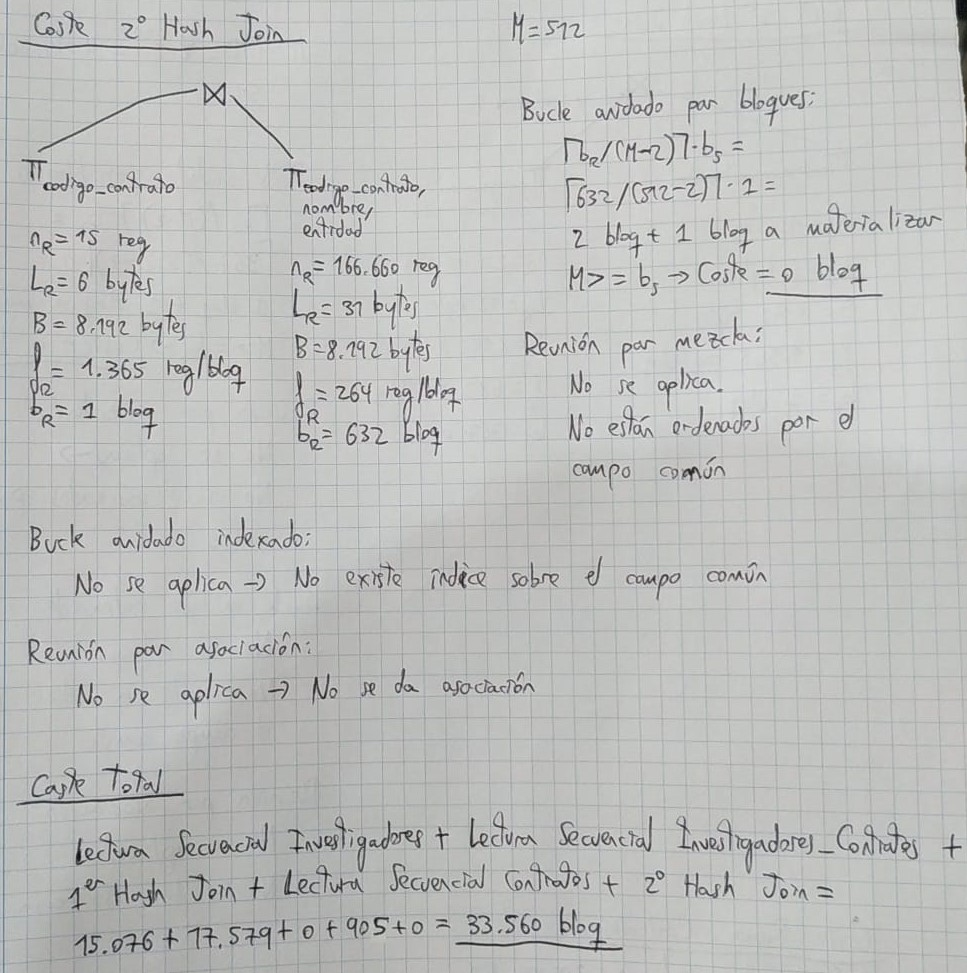 Coste 2º Hash Join
M=512
⋈
π codigo_contrato
n_R = 15 reg
L_R = 6 bytes
B = 8.192 bytes
f_R = 1.365 reg/bloq
b_R = 1 bloq
π codigo_contrato,
nombre,
entidad
n_R = 166.660 reg
L_R = 31 bytes
B = 8.192 bytes
f_R = 264 reg/bloq
b_R = 632 bloq
Bucle anidado por bloques:
⌈b_R/(M-2)⌉·b_s =
⌈632/(512-2)⌉·1 =
2 bloq + 1 bloq a materializar
M >= b_s → Coste = 0 bloq
Reunión por mezcla:
No se aplica.
No están ordenados por el
campo común
Bucle anidado indexado:
No se aplica → No existe índice sobre el campo común
Reunión por asociación:
No se aplica → No se da asociación
Coste Total
Lectura Secuencial Investigadores + Lectura Secuencial Investigadores_Contratos +
1er Hash Join + Lectura Secuencial Contratos + 2º Hash Join =
15.076 + 17.579 + 0 + 905 + 0 = 33.560 bloq